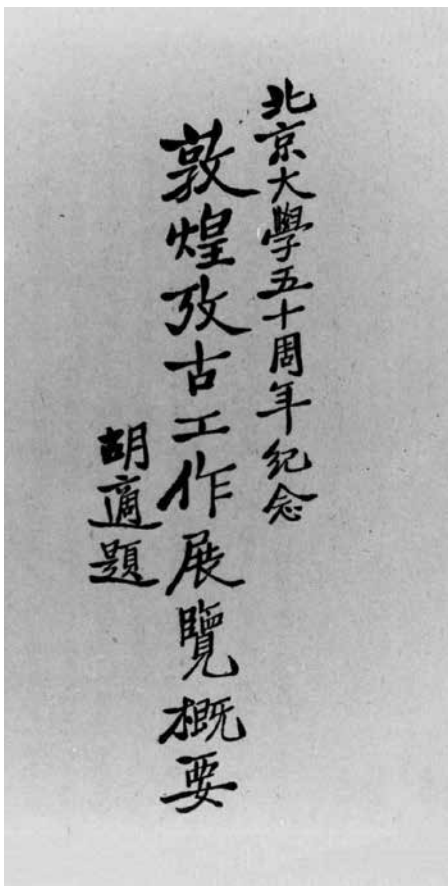 北京大學五十周年纪念
敦煌攷古工作展覽概要
胡適題